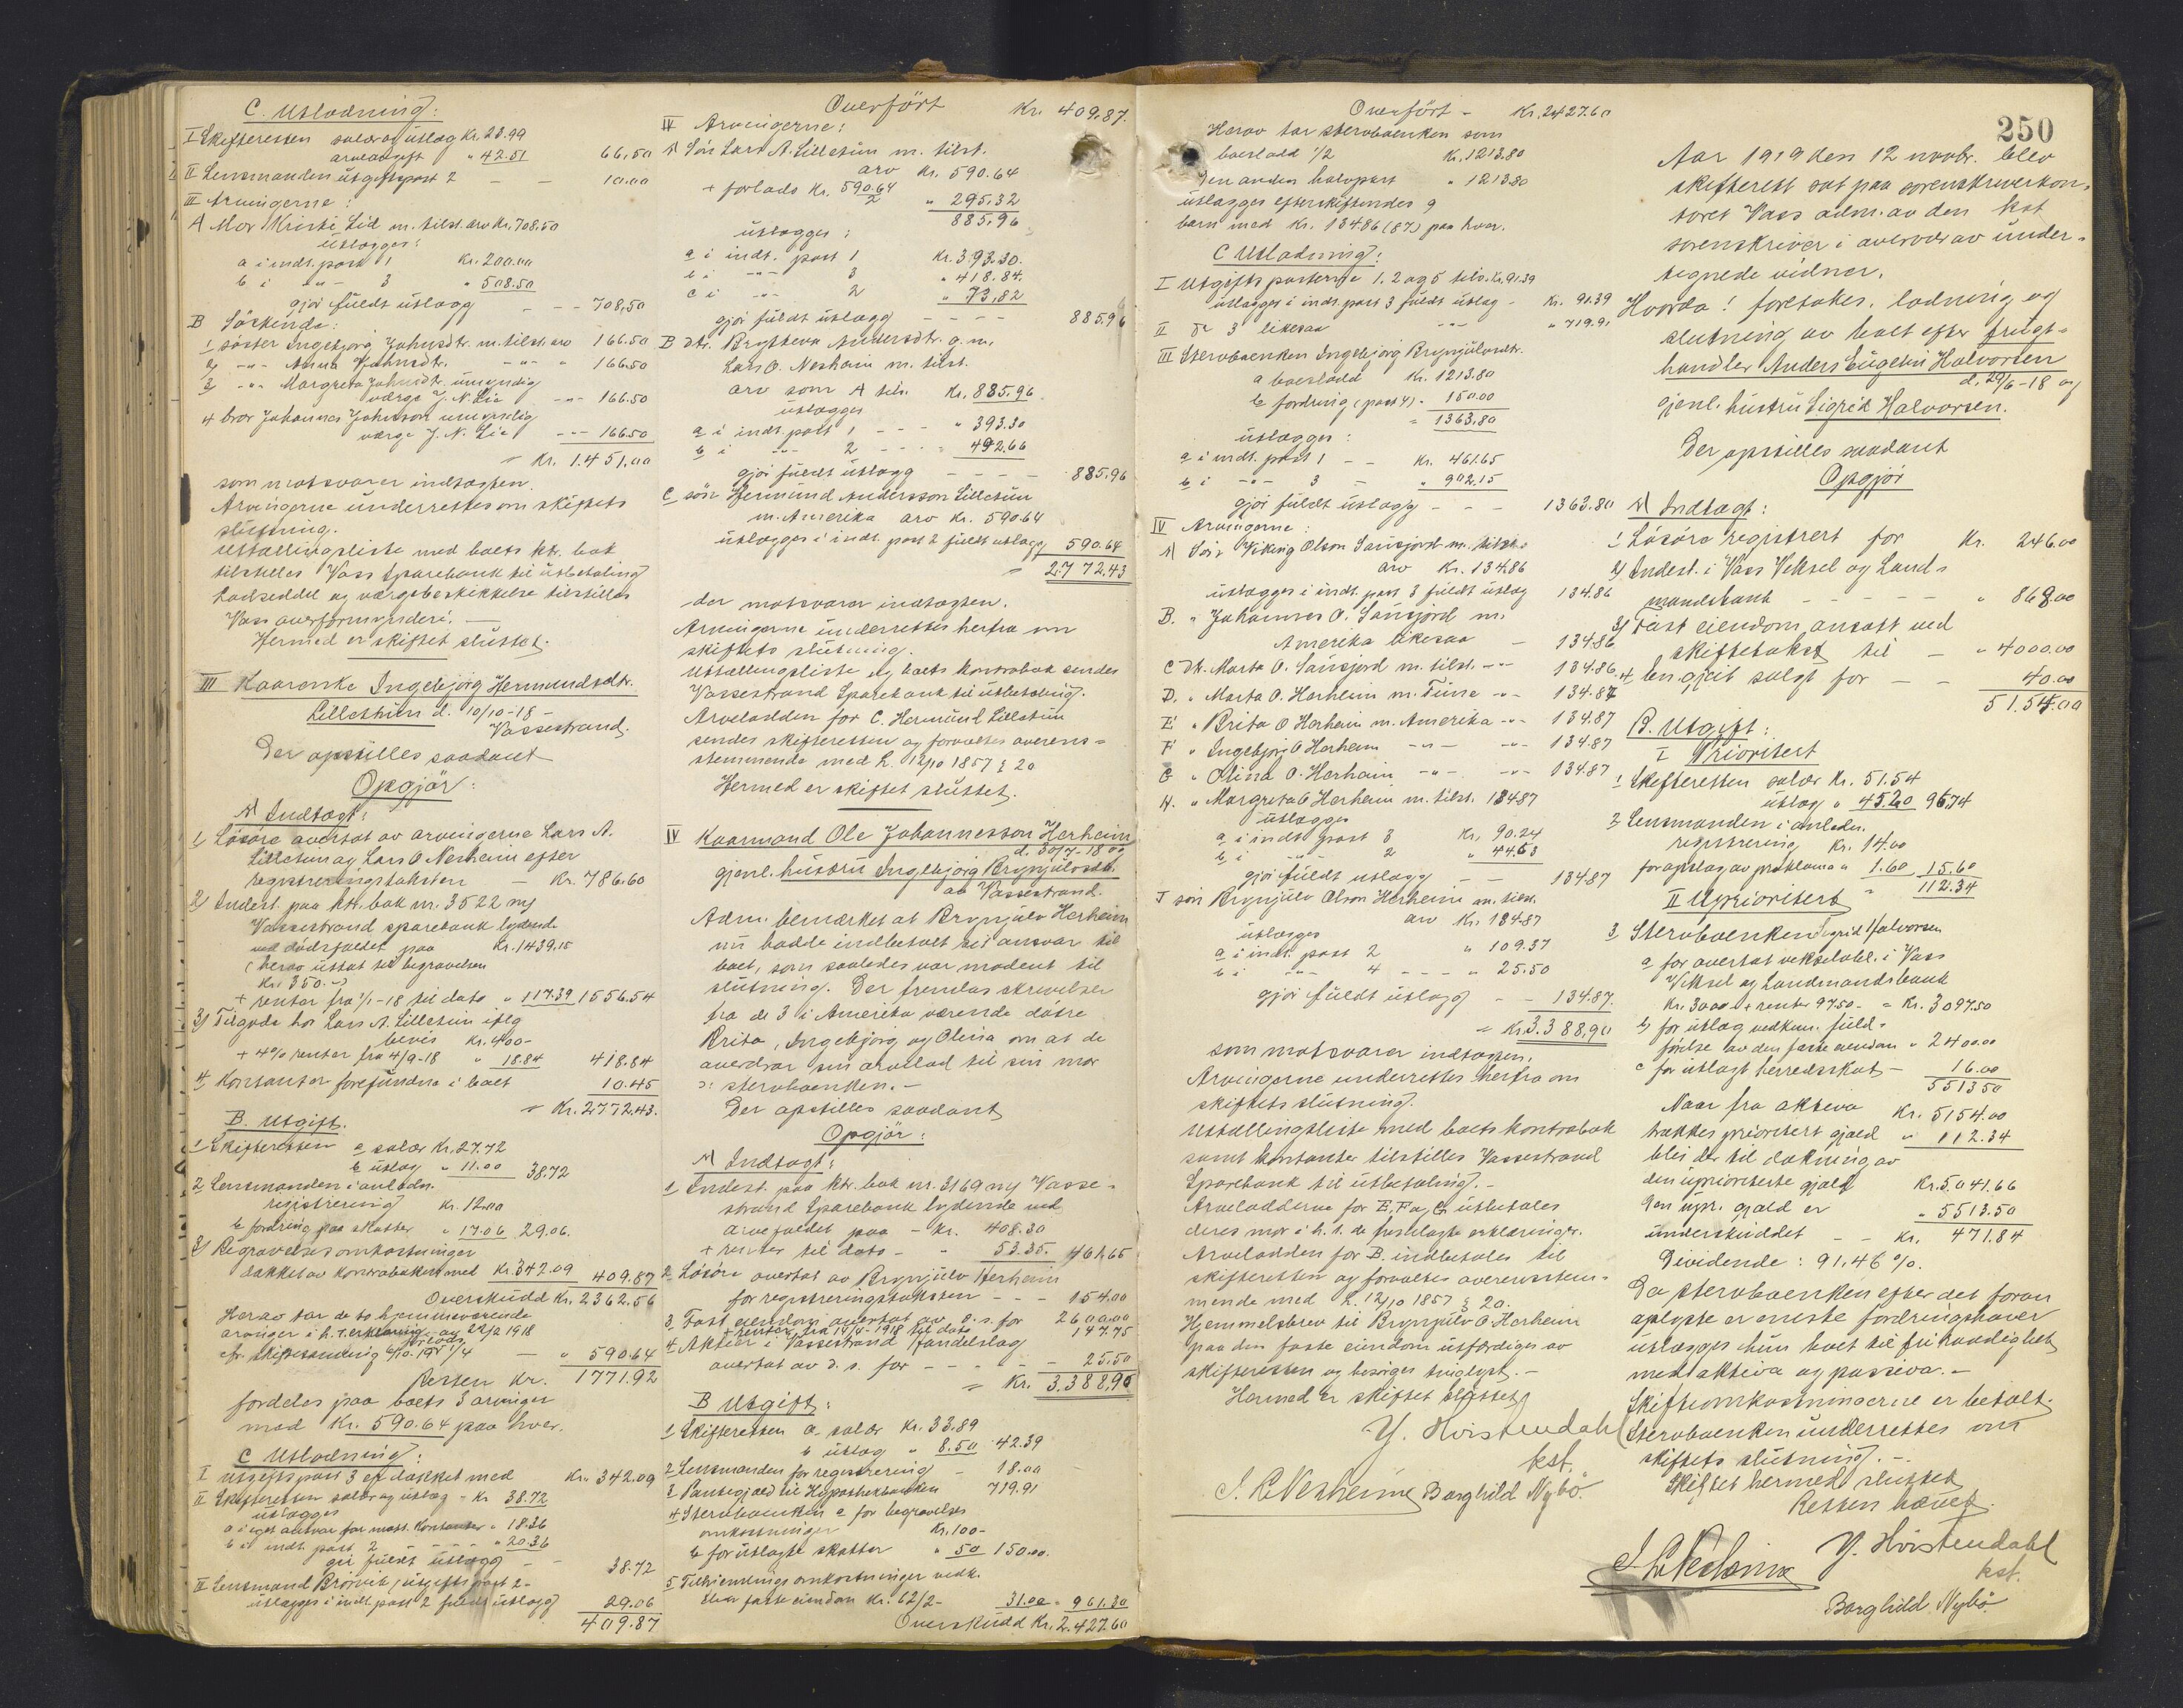 C. Utlodning:
I Skifteretten salær og utlæg Kr. 23.99
arveavgift " 42.51 66.50
II Lensmanden utgiftspost 2 - - 10.00
III Arvingerne:
A Mor Kristi Lid m. tilst. arv Kr. 708.50
utlægges:
a i indt. post 1 Kr. 200.00
b i -"- 3 " 508.50
gjør fuldt utlægg - - 708,50
B Söskende:
1 søster Ingebjørg Johnsdtr. m. tilst. arv 166.50
2 -"- Anna Johnsdtr. -"- " 166.50
3 -"- Margreta Johnsdtr. umyndig
værge J. N. Lie -"- 166.50
4 bror Johannes Johnson umyndig
værge J. N. Lie -"- 166.50
= Kr. 1.451,00
som motsvarer indtægten.
Arvingerne underrettes om skiftets
slutning.
Uttællingsliste med boets ktr. bok
tilstilles Voss Sparebank til utbetaling
Lodseddel og værgebeskikkelse tilstilles
Voss overformynderi. -
Hermed er skiftet sluttet.
III Kaarenke Ingebjørg Hermundsdtr.
Lilletun d. 10/10-18 -
Vossestrand.
Der opstilles saadant
Opgjör:
A Indtægt:
1, Lösöre overtat av arvingerne Lars A.
Lilletun og Lars O Nesheim efter
registreringstaksten - Kr. 786.60
2, Indest. paa ktr. bok nr. 3522 m/
Vossestrand sparebank lydende
ved dödsfaldet paa Kr. 1439.15
(herav uttat til begravelsen
Kr. 350.-)
+ renter fra 1/1-18 til dato " 117.39 1556.54
3, Tilgode hos Lars A. Lilletun iflg
bevis Kr. 400-
+ 4% renter fra 4/9-18 " 18.84 418.84
4 Kontanter forefundne i boet 10.45
= Kr. 2772.43.
B. Utgift.
1 Skifteretten a salær Kr. 27.72
b utlæg " 11.00 38.72
2 Lensmanden i anledn.
registrering Kr. 12.00
b fordring paa skatter " 17.06 29.06.
3, Begravelsesomkostninger
dækket av kontraboken med Kr. 342.09 409.87
Overskudd Kr. 2362.56
Herav tar de to hjemmeværende
arvinger i h. t. erklæring av 22/2 1918
" 590.64
Resten Kr. 1771.92
fordeles paa boets 3 arvinger
med Kr. 590.64 paa hver.
C Utlodning:
I Utgiftspost 3 er dækket med Kr. 342.09
II Skifteretten salær og utlæg - Kr 38.72
utlægges
a i eget ansvar for mott. Kontanter " 18.36
b i indt. post 2 - - - " 20.36
gir fuldt utlægg - - 38.72
III Lensmand Brørvik, utgiftspost 2 -
utlægges i indt. post 2 fuldt utlægg 29.06
409.87
Overfört Kr. 409,87.
IV Arvingerne:
A Sön Lars A. Lilletun m. tilst.
arv Kr. 590.64
+ forlods Kr. 590.64/2 " 295,32
885,96
utlægges:
a i indt. post 1 Kr. 393.30.
b i -"- 3 " 418.84.
c i -"- 2 " 73,82
gjör fuldt utlægg - - - - 885.96
B dtr. Brytteva Andersdtr. g. m.
Lars O. Nesheim m. tilst.
arv som A tils. Kr. 885,96
utlægges
a i indt. post 1 - - - " 393.30
b i -"- 2 - - - " 492.66
gjör fuldt utlægg - - - 885.96
C sön Hermund Andersson Lilletun
m. Amerika arv Kr. 590.64
utlægges i indt. post 2 fuldt utlægg 590.64
= 2.772.43
der motsvarer indtægten.
Arvingerne underrettes herfra om
skiftets slutning.
Utbetlingsliste og boets kontrabok sendes
Vossestrand Sparebank til utbetaling.
Arvelodden for C. Hermund Lilletun
sendes skifteretten og forvaltes overens-
stemmende med L. 12/10 1857 § 20
Hermed er skiftet sluttet.
IV Kaarmand Ole Johannesson Herheim
d. 30/7-18 og
gjenl. hustru Ingebjörg Brynjulvsdtr.
ab Vossestrand.
Adm. bemærket at Brynjulv Herheim
nu hadde indbetalt sit ansvar til
boet, som saaledes var modent til
slutning. Der fremlas skrivelser
fra de 3 i Amerika værende døtre
Brita, Ingebjörg og Olina om at de
overdrar sin arvelod til sin mor
ɔ: stervboenken. -
Der opstilles saadant
Opgjör:
A Indtægt:
1 Indest. paa ktr. bok nr. 3169 m/ Vosse-
strand Sparebank lydende ved
arvefaldet paa - Kr. 408.30
+ renter til dato - " 53.35. 461.65
2 Lösöre overtat av Brynjulv Herheim
for registreringstaksten - - - 154.00
3, Fast eiendom overtat av d. s. for 2600.00
+ renter fra 14/4 - 1918 til dato 147.75
4 Aktier i Vossestrand Handelslag
overtat av d. s. for - - - - - 25.50
= Kr. 3.388,90
B Utgift:
1 Skifteretten a salær Kr. 33.89
b utlæg " 8.50 42.39
2 Lensmanden for registrering - 18.00
3 Pantegjæld til Hypotekbanken 719.91
4 Stervboenken a for begravelses
omkostninger Kr. 100-
b for utlagte skatter " 50 150.00.
5 Tilhjemlings omkostninger vedk.
den faste eiendom Kr. 62/2- 31.00 = 961.30
Overskudd Kr. 2.427.60
Overfört - Kr. 2427.60
Herav tar stervboenken som
boeslodd 1/2 Kr. 1213.80
Den anden halvpart " 1213.80
utlægges efterskiftendes 9
barn med Kr. 134.86 (87) paa hver.
C Utlodning:
I Utgifts posterne 1. 2 og 5 tils. Kr. 91.39
utlægges i indt. post 3 fuldt utlæg - Kr. 91.39
II Do 3 likesaa -"- " 719.91
III Stervboenken Ingebjörg Brynjulvsdtr.
a boeslodd Kr. 1213.80
b fordring (post 4) - 150.00
= 1363,80
utlægges:
a i indt. post 1 - - Kr. 461.65
b i -"- 3 - " 902.15
gjør fuldt utlægg - - - 1363.80
IV Arvingerne:
A Sön Viking Olson Saursjord m. tilst.
arv Kr. 134.86
utlægges i indt. post 3 fuldt utlæg 134.86
B. " Johannes O. Saursjord m.
Amerika likesaa - 134.86
C Dt. Marta O. Saursjord m. tilst. -"- 134.86
D. " Marta O. Herheim m. Tune -"- 134.87
E " Brita O Herheim m. Amerika -"- 134.87
F " Ingebjörg O Herheim -"- -"- 134.87
G " Olina O. Herheim -"- -"- 134.87
H. " Margreta O Herheim m. tilst. 134.87
utlægges
a i indt. post 3 Kr. 90.24
b i -"- 2 " 44.63
gjör fuldt utlægg - - 134.87
J sön Brynjulv Olson Herheim m. tilst.
arv Kr. 134.87
utlægges
a i indt. post 2 " 109.37
b i -"- 4 - - - " 25.50
gjör fuldt utlægg - - 134.87.
= Kr. 3.388,90
som motsvarer indtægten.
Arvingerne underrettes herfra om
skiftets slutning.
Uttællingsliste med boets kontrabok
samt kontanter tilstilles Vossestrand
Sparebank til utbetaling. -
Arveloddene for E, F og G utbetales
deres mor i h. t. de fremlagte erklæringer.
Arvelodden for B. indbetales til
skifteretten og forvaltes overensstem-
mende med L. 12/10 1857 § 20.
Hjemmelsbrev til Brynjulv O Herheim
paa den faste eiendom utfærdiges av
skifteretten og besörges tinglyst. -
Hermed er skiftet sluttet
Y. Hvistendahl
kst.
Borghild Nybö.
250
Aar 1919 den 12 novbr. blev
skifterett sat paa sorenskriverkon-
toret Voss adm. av den kst
sorenskriver i overvær av under-
tegnede vidner.
Hvorda! foretokes, lodning og
slutning av boet efter frugt-
handler Anders Eugelin Halvorsen
d. 29/6-18 og
gjenl. hustru Sigrid Halvorsen.
Der opstilles saadant
Opgjör
A Indtægt:
1 Lösöre registrert for Kr. 246.00
2, Indest. i Voss Veksel og Land-
mandsbank - - - - - " 868.00
3, Fast eiendom ansatt ved
skiftetakst til - " 4000.00
4 En gjeit solgt for - - 40.00
5154.00
B. Utgift:
I Prioritert
1 Skifteretten salær Kr. 51.54
utlæg " 45.20 96,74
2 Lensmanden i anledn.
registrering Kr. 14.00
for opslag av proklama " 1.60 15.60
" 112.34
II Uprioritert
3 Stervboenken Sigrid Halvorsen
a for overtat vekselobl. i Voss
Veksel og Landmandsbank
Kr. 3000 + rente 97.50 - = Kr. 3097.50
b, for utlæg vedkom. fuld-
förelse av den faste eiendom " 2400.00
c for utlagt herredsskat - 16.00
5513.50
Naar fra aktiva Kr. 5154.00
trækkes prioritert gjæld " 112.34
blir der til dækning av
den uprioriterte gjæld Kr. 5.041.66
Den upr. gjæld er " 5513.50
underskuddet - - Kr. 471.84
Dividende: 91.46 %.
Da stervboenken efter det foran
oplyste er eneste fordringshaver
utlægges hun boet til fri raadighet
med aktiva og passiva. -
Skifteomkostningerne er betalt.
Stervboenken underrettes om
skiftets slutning. -
Skiftet hermed sluttet
Retten hævet.
Y. Hvistendahl
kst.
Borghild Nybö